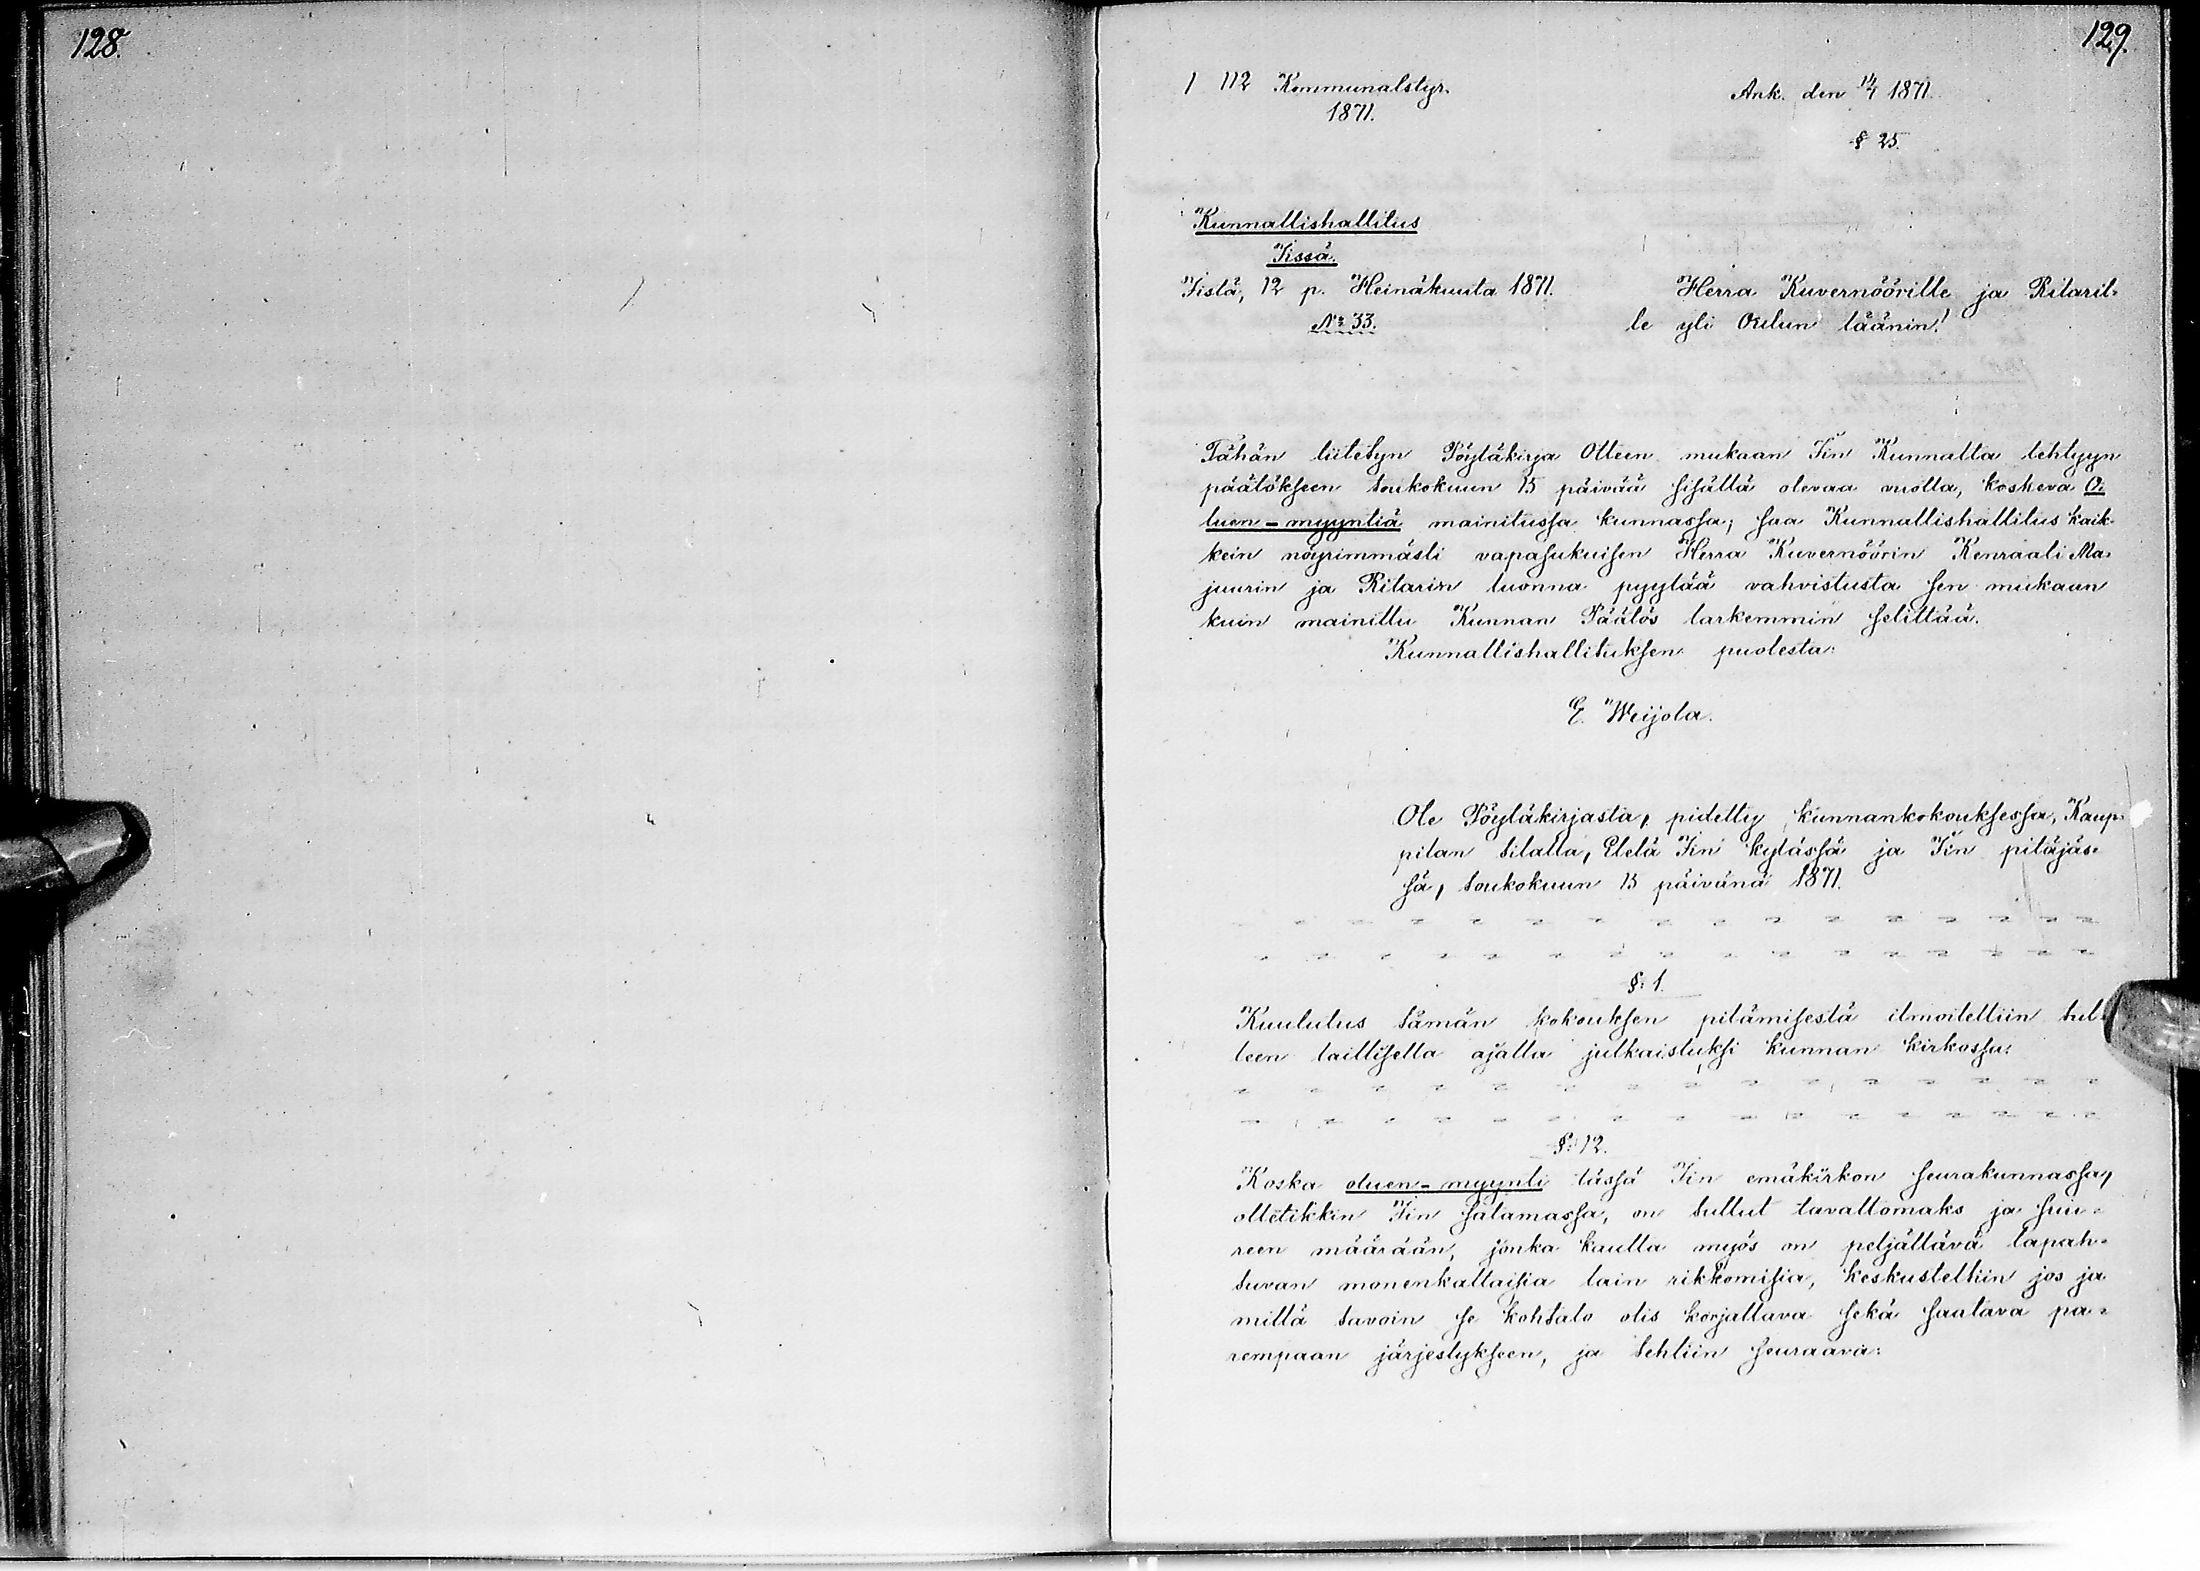 128.
129.
1 112 Kommunalstyr.
1871.
Ank. den 14/7 1871.
§ 25.
Kunnallishallitus
Iissä.
Iistä, 12 p. Heinäkuuta 1871.
№ 33.
Herra Kuvernöörille ja Ritaril-
le yli Oulun läänin!
Tähän liitetyn Pöytäkirja Otteen mukaan Iin Kunnalta tehtyyn
päätökseen toukokuun 15 päivää sisällä olevaa vuotta, koskeva O-
luen-myyntiä mainitussa kunnassa; saa Kunnallishallitus kaik-
kein nöyrimmästi vapasukuisen Herra Kuvernöörin Kenraali Ma-
juurin ja Ritarin luonna pyytää vahvistusta sen mukaan
kuin mainittu Kunnan Päätös tarkemmin selittää.
Kunnallishallituksen puolesta:
E. Weijola.
Ote Pöytäkirjasta, pidetty kunnankokouksessa, Kaup-
pilan tilalla, Etelä Iin kylässä ja Iin pitäjäs-
sä, toukokuun 15 päivänä 1871.
§: 1.
Kuulutus tämän kokouksen pitämisestä ilmoitettiin tul-
leen laillisella ajalla julkaistuksi kunnan kirkossa:
§: 12.
Koska oluen-myynti tässä Iin emäkirkon seurakunnassa,
ollétikkin Iin satamassa, on tullut tavattomaks ja suu-
reen määrään, jonka kautta myös on peljättävä tapah-
tuvan monenkaltaisia lain rikkomisia, keskusteltiin jos ja
millä tavoin se kohtalo olis korjattava sekä saatava pa-
rempaan järjestykseen, ja tehtiin seuraava: